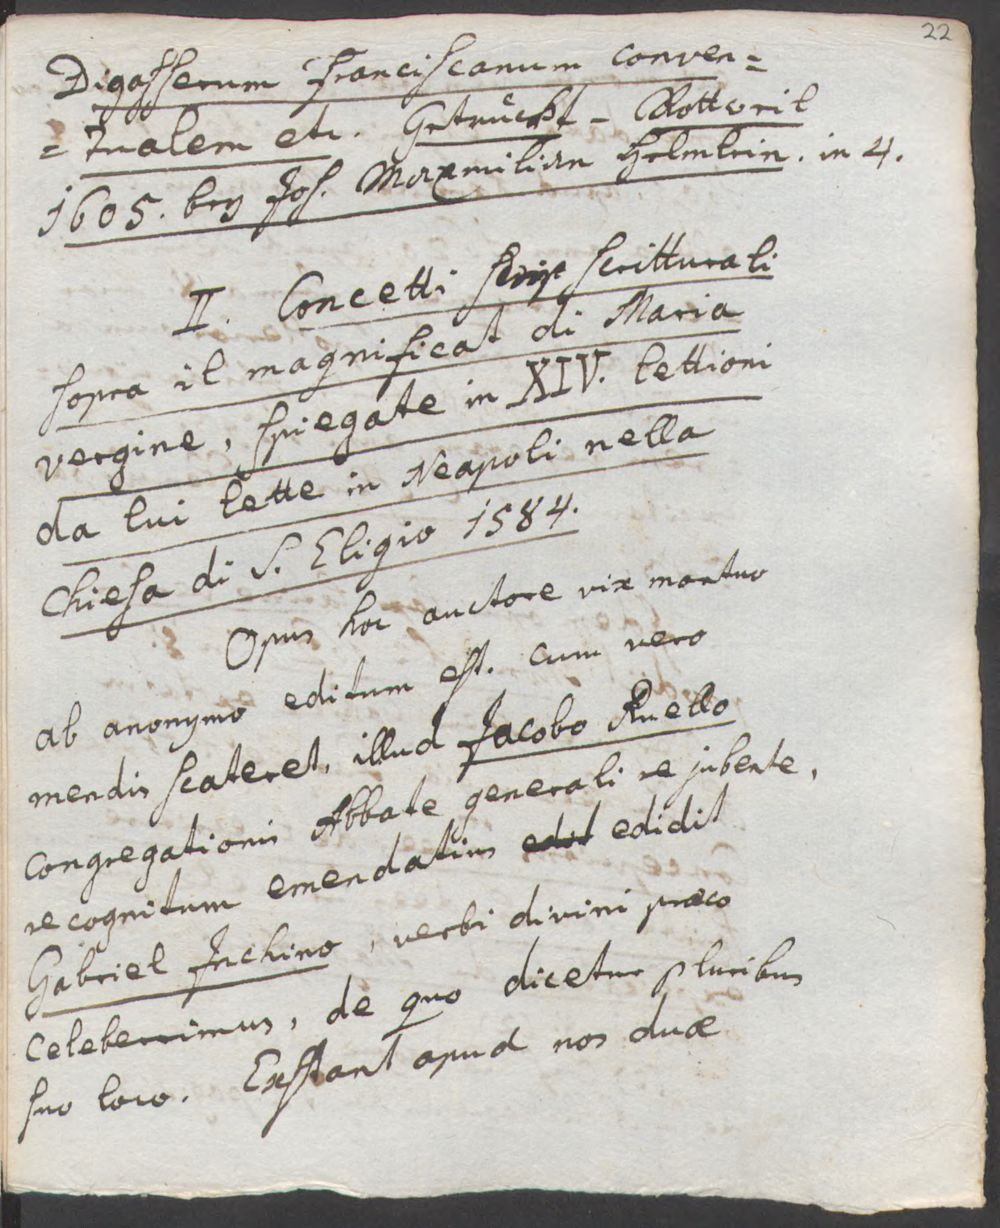 22
Digasserum Franciscanum conven=
=tualem etc. Getruckt – Rottweil
1605. bey Jos. Maxmilian Helmlein. in 4.
II. Concetti scritturali
sopra il magnificat di Maria
vergine, spiegate in XIV. lettioni
da lui lette in Neapoli nella
Chiesa di S. Eligio 1584.
Opus hoc auctore vix mortuo
ab anonymo editum est. cum vero
mendis scateret, illud Jacobo Ruello
congregationis Abbate generali re jubente,
recognitum emendatius edidit
Gabriel Inchino, verbi divini præco
celeberrimus, de quo dicetur pluribus
suo loco. Exstant apud nos duæ